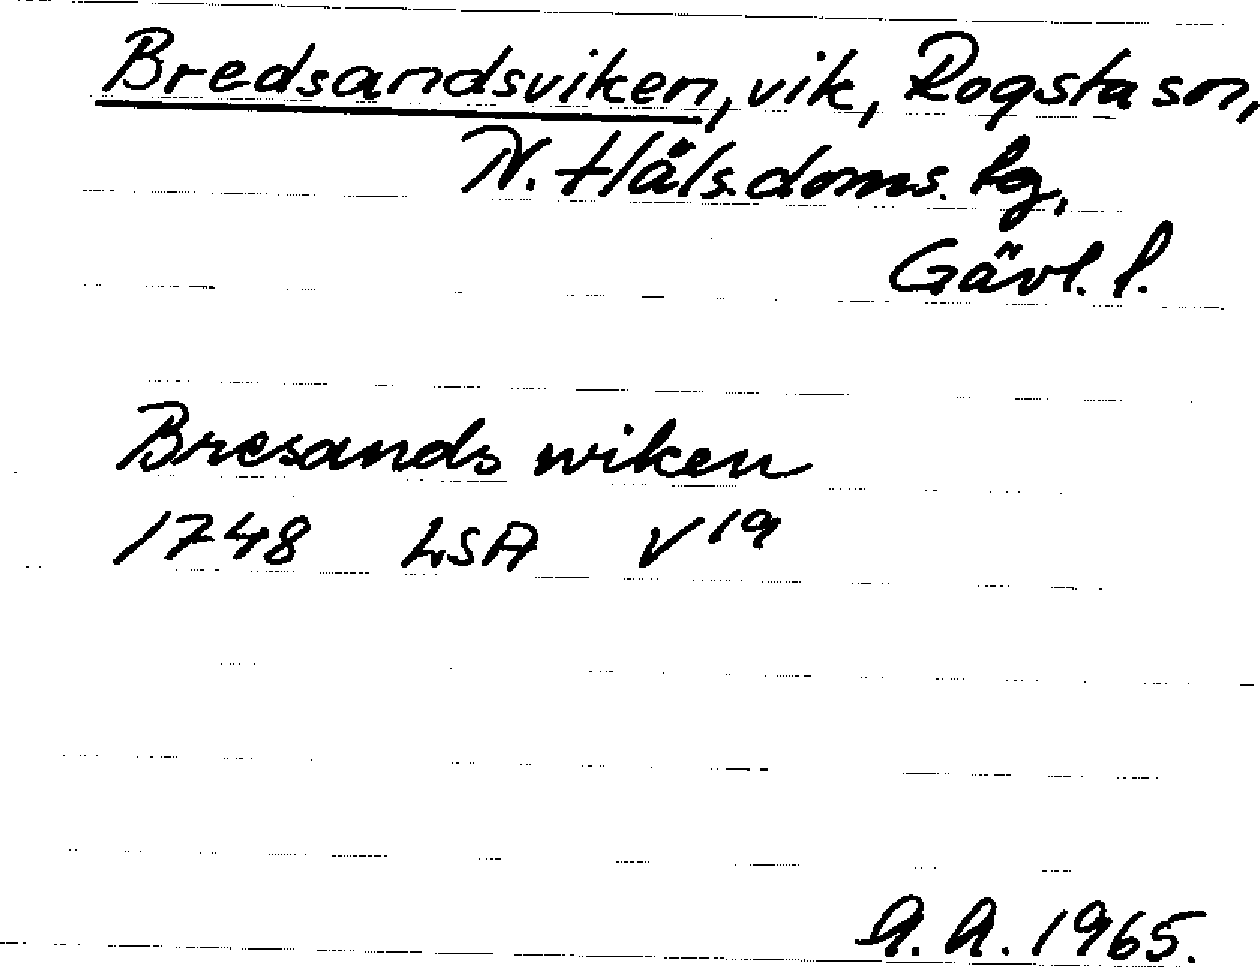 Bredsandsviken, vik, Rogsta sn,
N. Häls. doms. lg,
Gävl. l.
Bresands wiken
1748 LSA V 19
A. A. 1965.